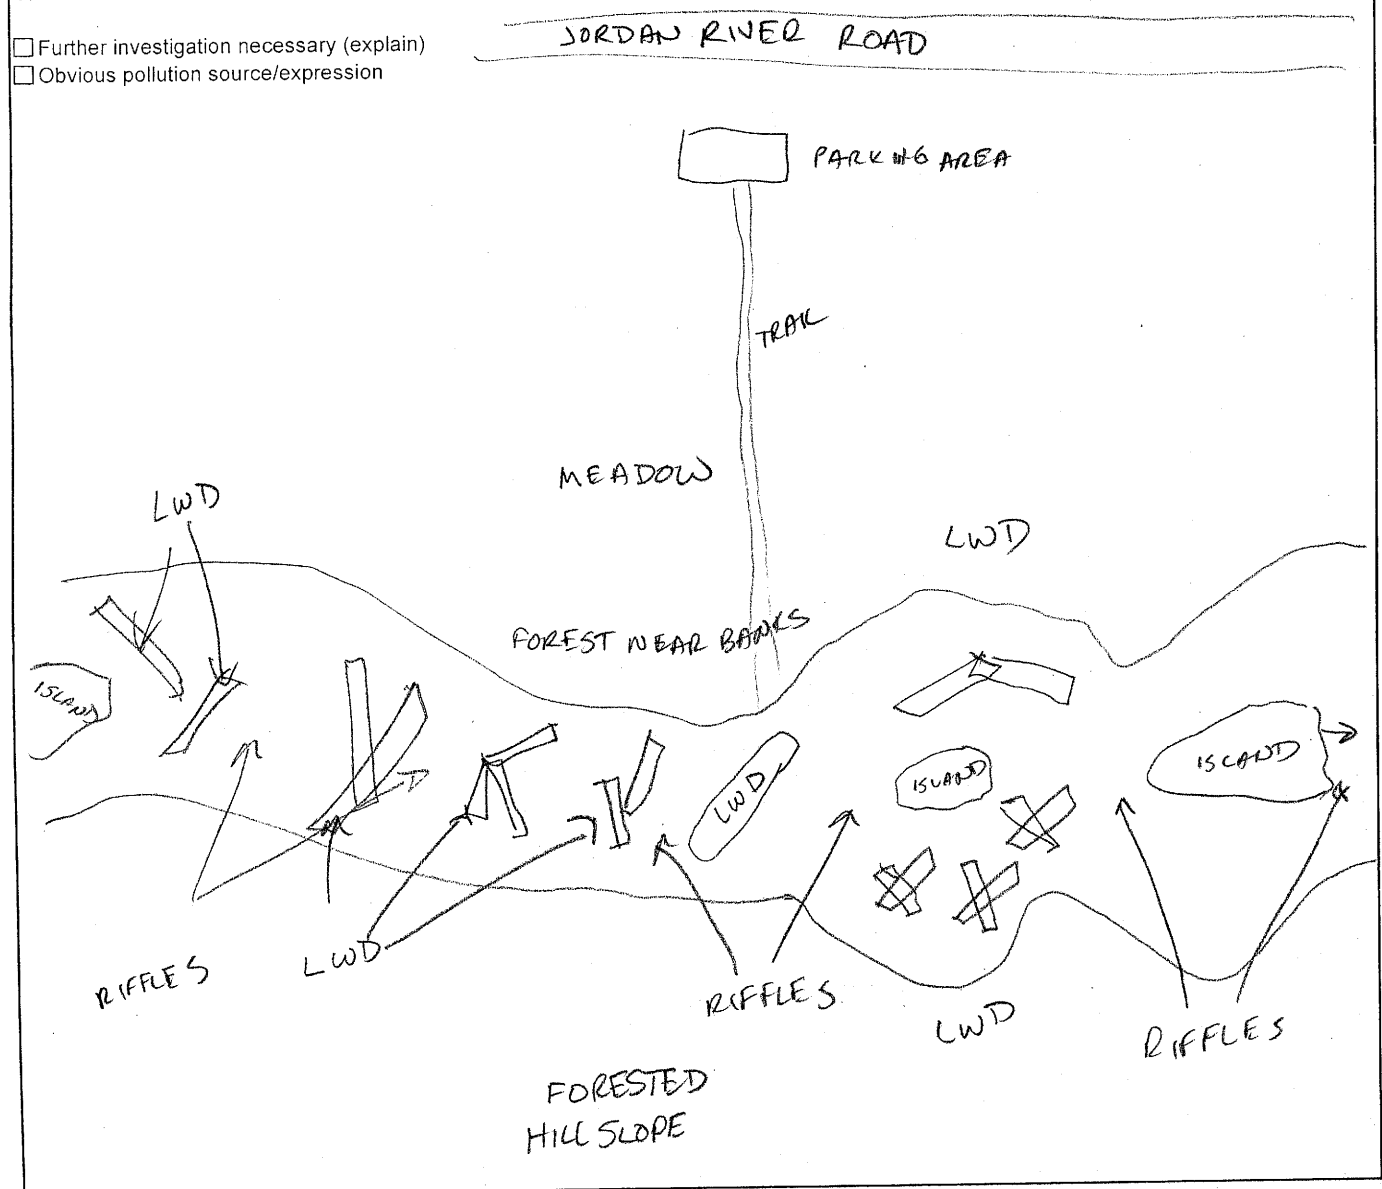 JORDAN RIVER ROAD
Further investigation necessary (explain)
Obvious pollution source/expression
PARKING AREA
TRAIL
MEADOW
LWD
LWD
FOREST NEAR BANKS
ISLAND
ISLAND
ISLAND
LWD
RIFFLES
LWD
RIFFLES
LWD
RIFFLES
FORESTED
HILL SLOPE